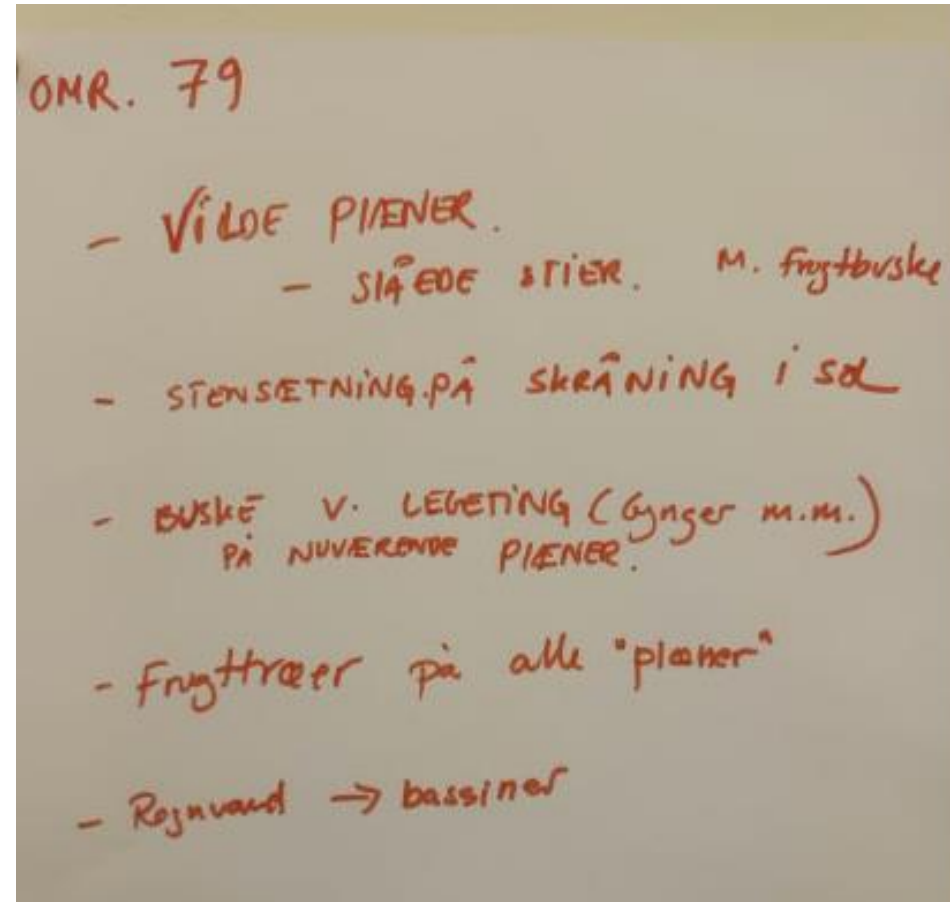 OMR. 79
- VILDE PLÆNER.
- SLÅEDE STIER. M. frugtbuske
- STENSÆTNING. PÅ SKRÅNING i SOL
- BUSKE V. LEGETING (Gynger m.m.)
PÅ NUVÆRENDE PLÆNER.
- Frugttræer på alle "plæner"
- Regnvand → bassiner